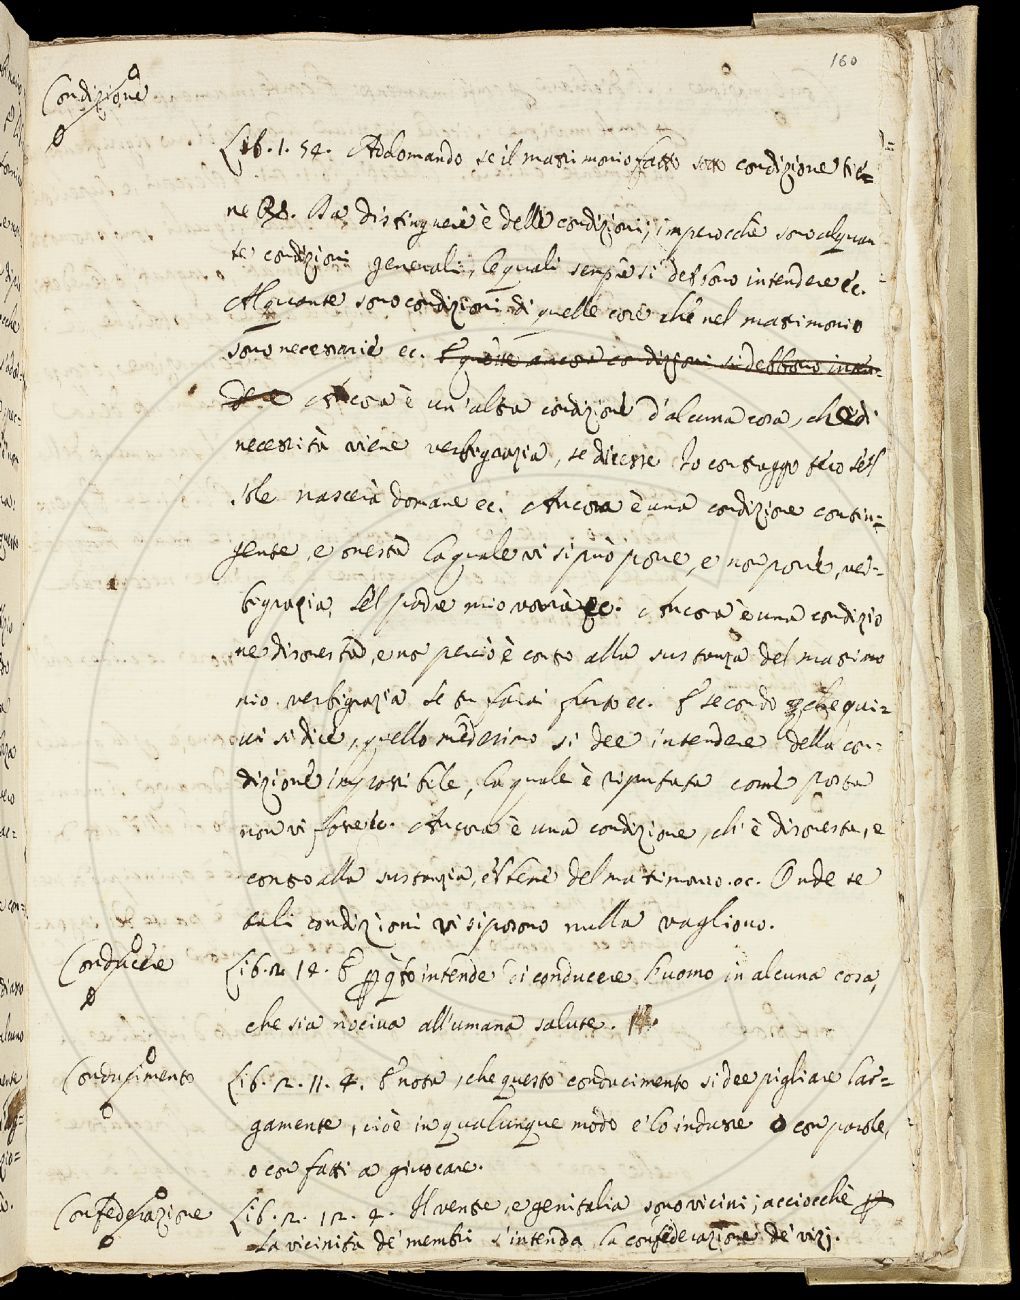 160
Condizione
Lib. 1. 54. Addomando se il matrimonio fatto sotto condizione tie=
ne. Da distinguere è delle condizioni, imperocchè sono alquan
te condizioni generali, le quali sempre si debbono intendere ec.
Alquante sono condizioni di quelle cose che nel matrimonio
sono necessarie ec. E queste ancora condizioni si debbono inten=
de e Ancora è un'altra condizione d'alcuna cosa, che di
necessità viene verbigrazia, se dicesse Io contraggo teco se'l
sole nascerà domane ec. Ancora è una condizione contin=
gente, e onesta la quale vi si può porre, e non porre, ver=
bigrazia, se'l padre mio vorrà ec. Ancora è una condizio
ne disonesta, e nō perciò è contro alla sustanza del matrimo
nio verbigrazia se tu farai furto ec. E secondo che qui=
vi si dice, quello medesimo si dee intendere della con=
dizione impossibile, la quale è riputata come posta
non vi fosse ec. Ancora è una condizione, ch'è disonesta, e
contro alla sustanza, e'l bene del matrimonio. ec. Onde se
tali condizioni vi si posono nulla vagliono.
Conducere
Lib. 2. 14. E p qsto intende di conducere l'uomo in alcuna cosa,
che sia nociva all'umana salute. 14.
Conducimento
Lib. 2. 11. 4. E nota, che questo conducimento si dee pigliare lar=
gamente, cioè in qualunque modo e' lo indusse o con parole,
o con fatti a giuocare.
Confederazione
Lib. 2. 12. 4. Il ventre, e genitalia sono vicini; acciocchè p
la vicinità de' membri s'intenda la confederazione de' vizj.